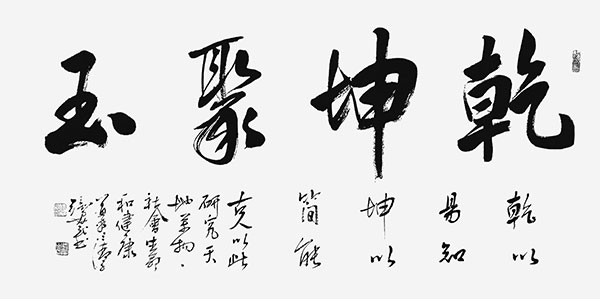 乾坤聚玉
乾以
易知
坤以
簡能
克以此
研究天
地萬物
社會生命
和健康